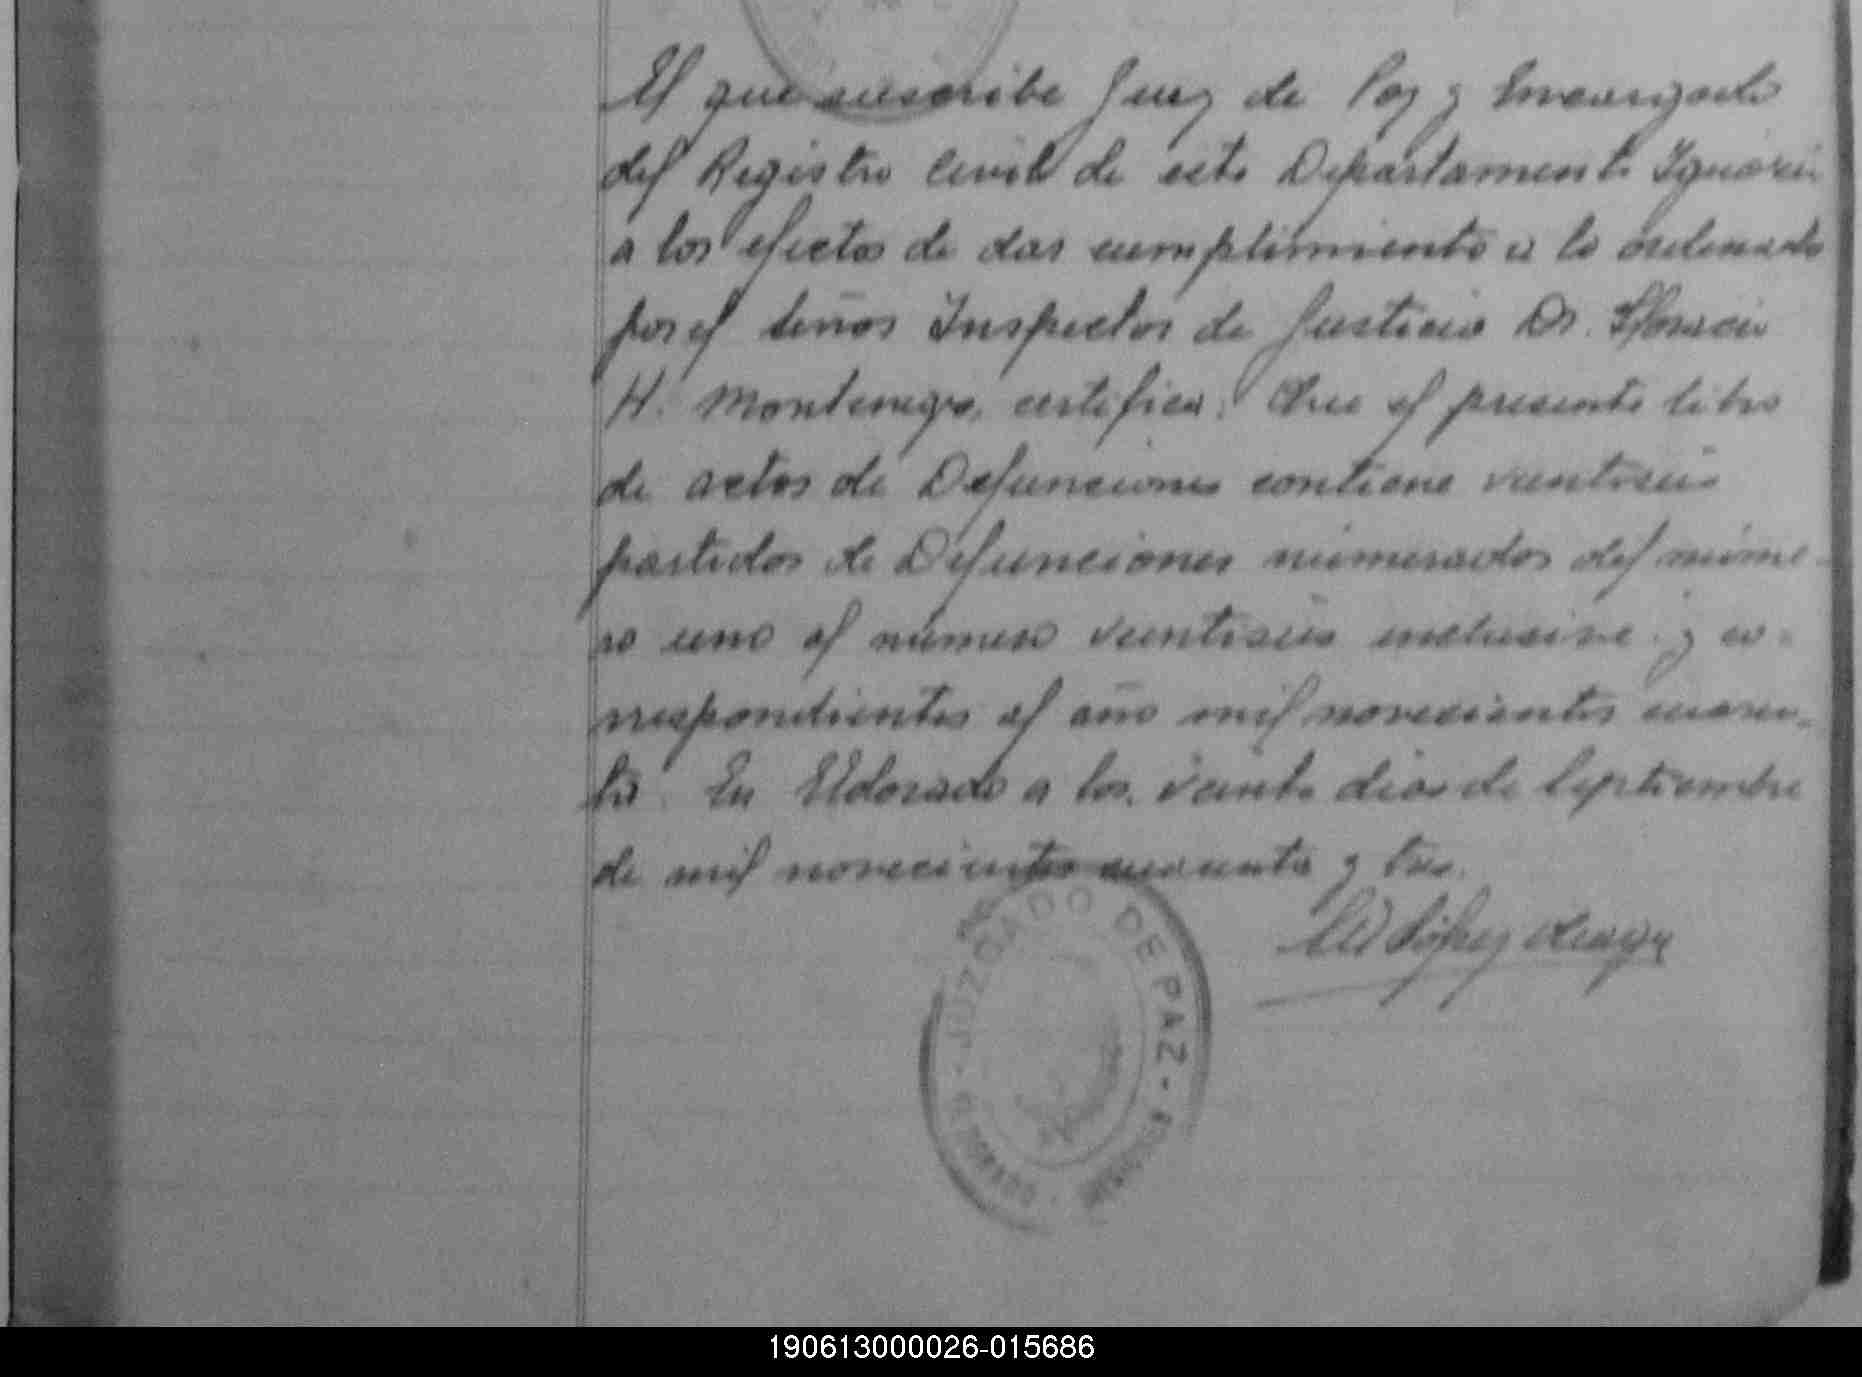 El que suscribe Juez de Paz y Encargado
del Registro Civil de este Departamento Iguazú
a los efectos de dar cumplimiento a lo ordenado
por el Señor Inspector de Justicia Dr. Horacio
H. Montenegro, certifica: Que el presente libro
de actas de Defunciones contiene veintiseis
partidas de Defunciones numeradas del núme-
ro uno al número veintiseis inclusive y co-
rrespondientes al año mil novecientos cuaren-
ta. En Eldorado a los veinte dias de Septiembre
de mil novecientos cuarenta y tres.
JUZGADO DE PAZ
ELDORADO
190613000026-015686